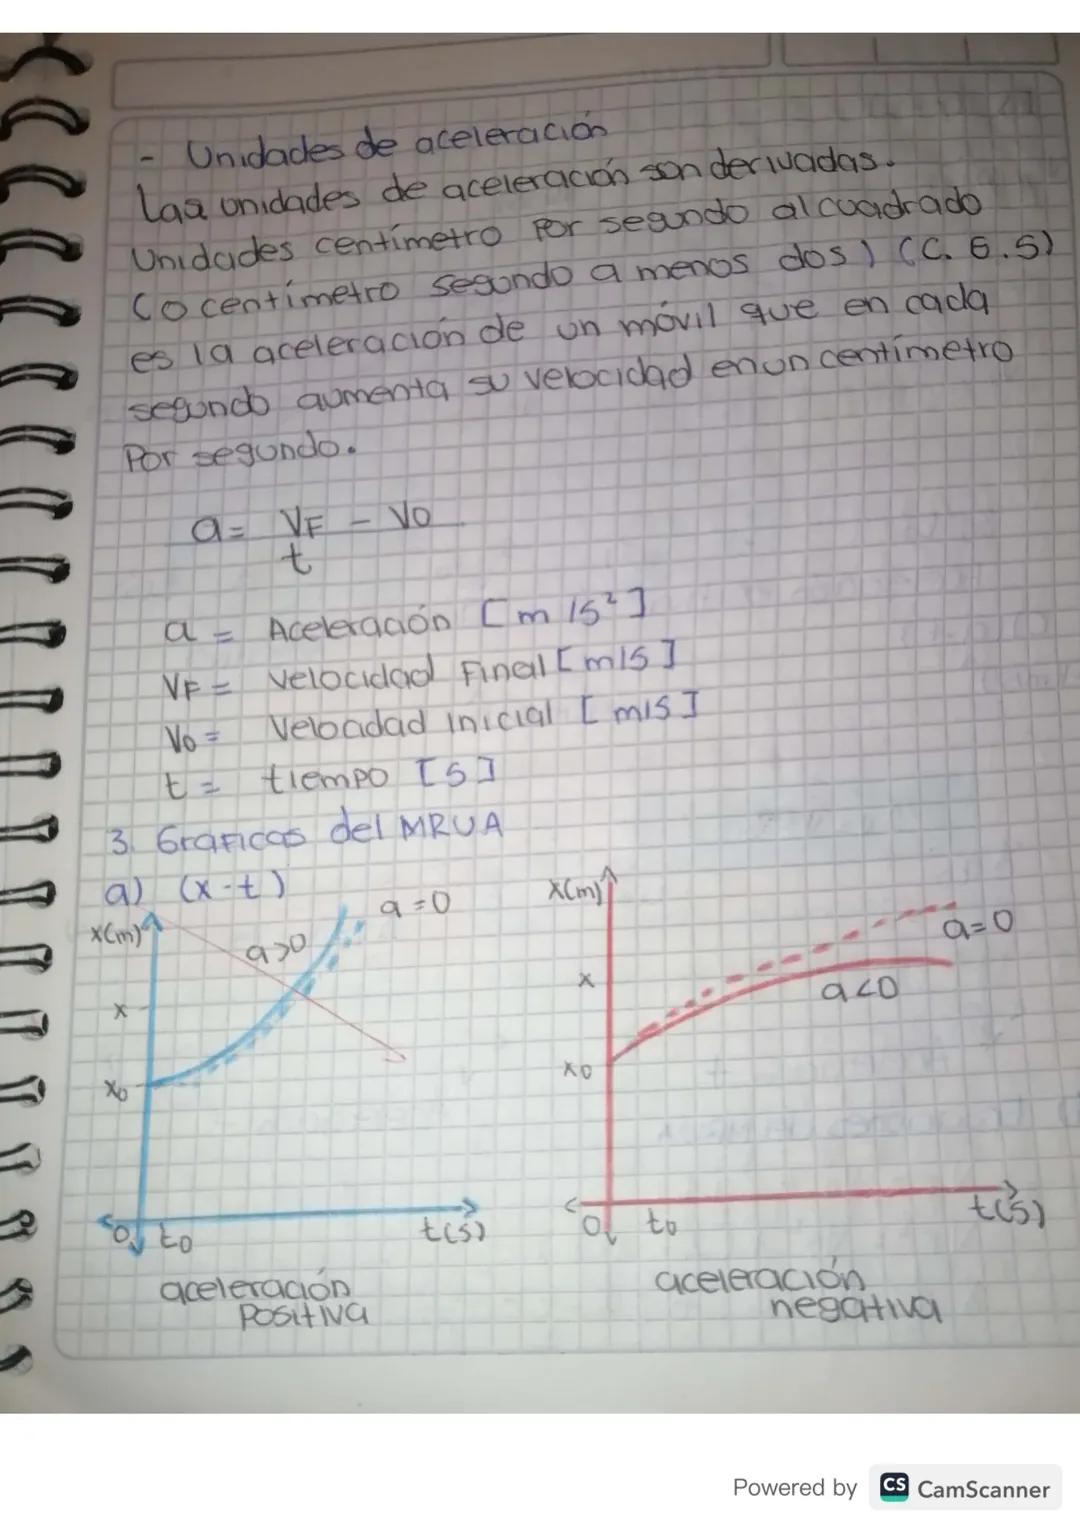 - Unidades de aceleración
Laa unidades de aceleración son derivadas.
Unidades centímetro por segundo al cuadrado
(o centímetro segundo a menos dos) (C. G. S)
es la aceleración de un móvil que en cada
segundo aumenta su velocidad en un centímetro
Por segundo.
a = VF - VO
t
a = Aceleración [m/s²]
VF = Velocidad Final [m/s]
Vo = Velocidad inicial [m/s]
t = tiempo [s]
3. Graficas del MRUA
a) (x-t)
X(m)
a>0
a=0
x
Xo
0
to
t(s)
aceleración
Positiva
X(m)
a=0
a<0
x
xo
0
to
t(s)
aceleración
negativa
Powered by CS CamScanner